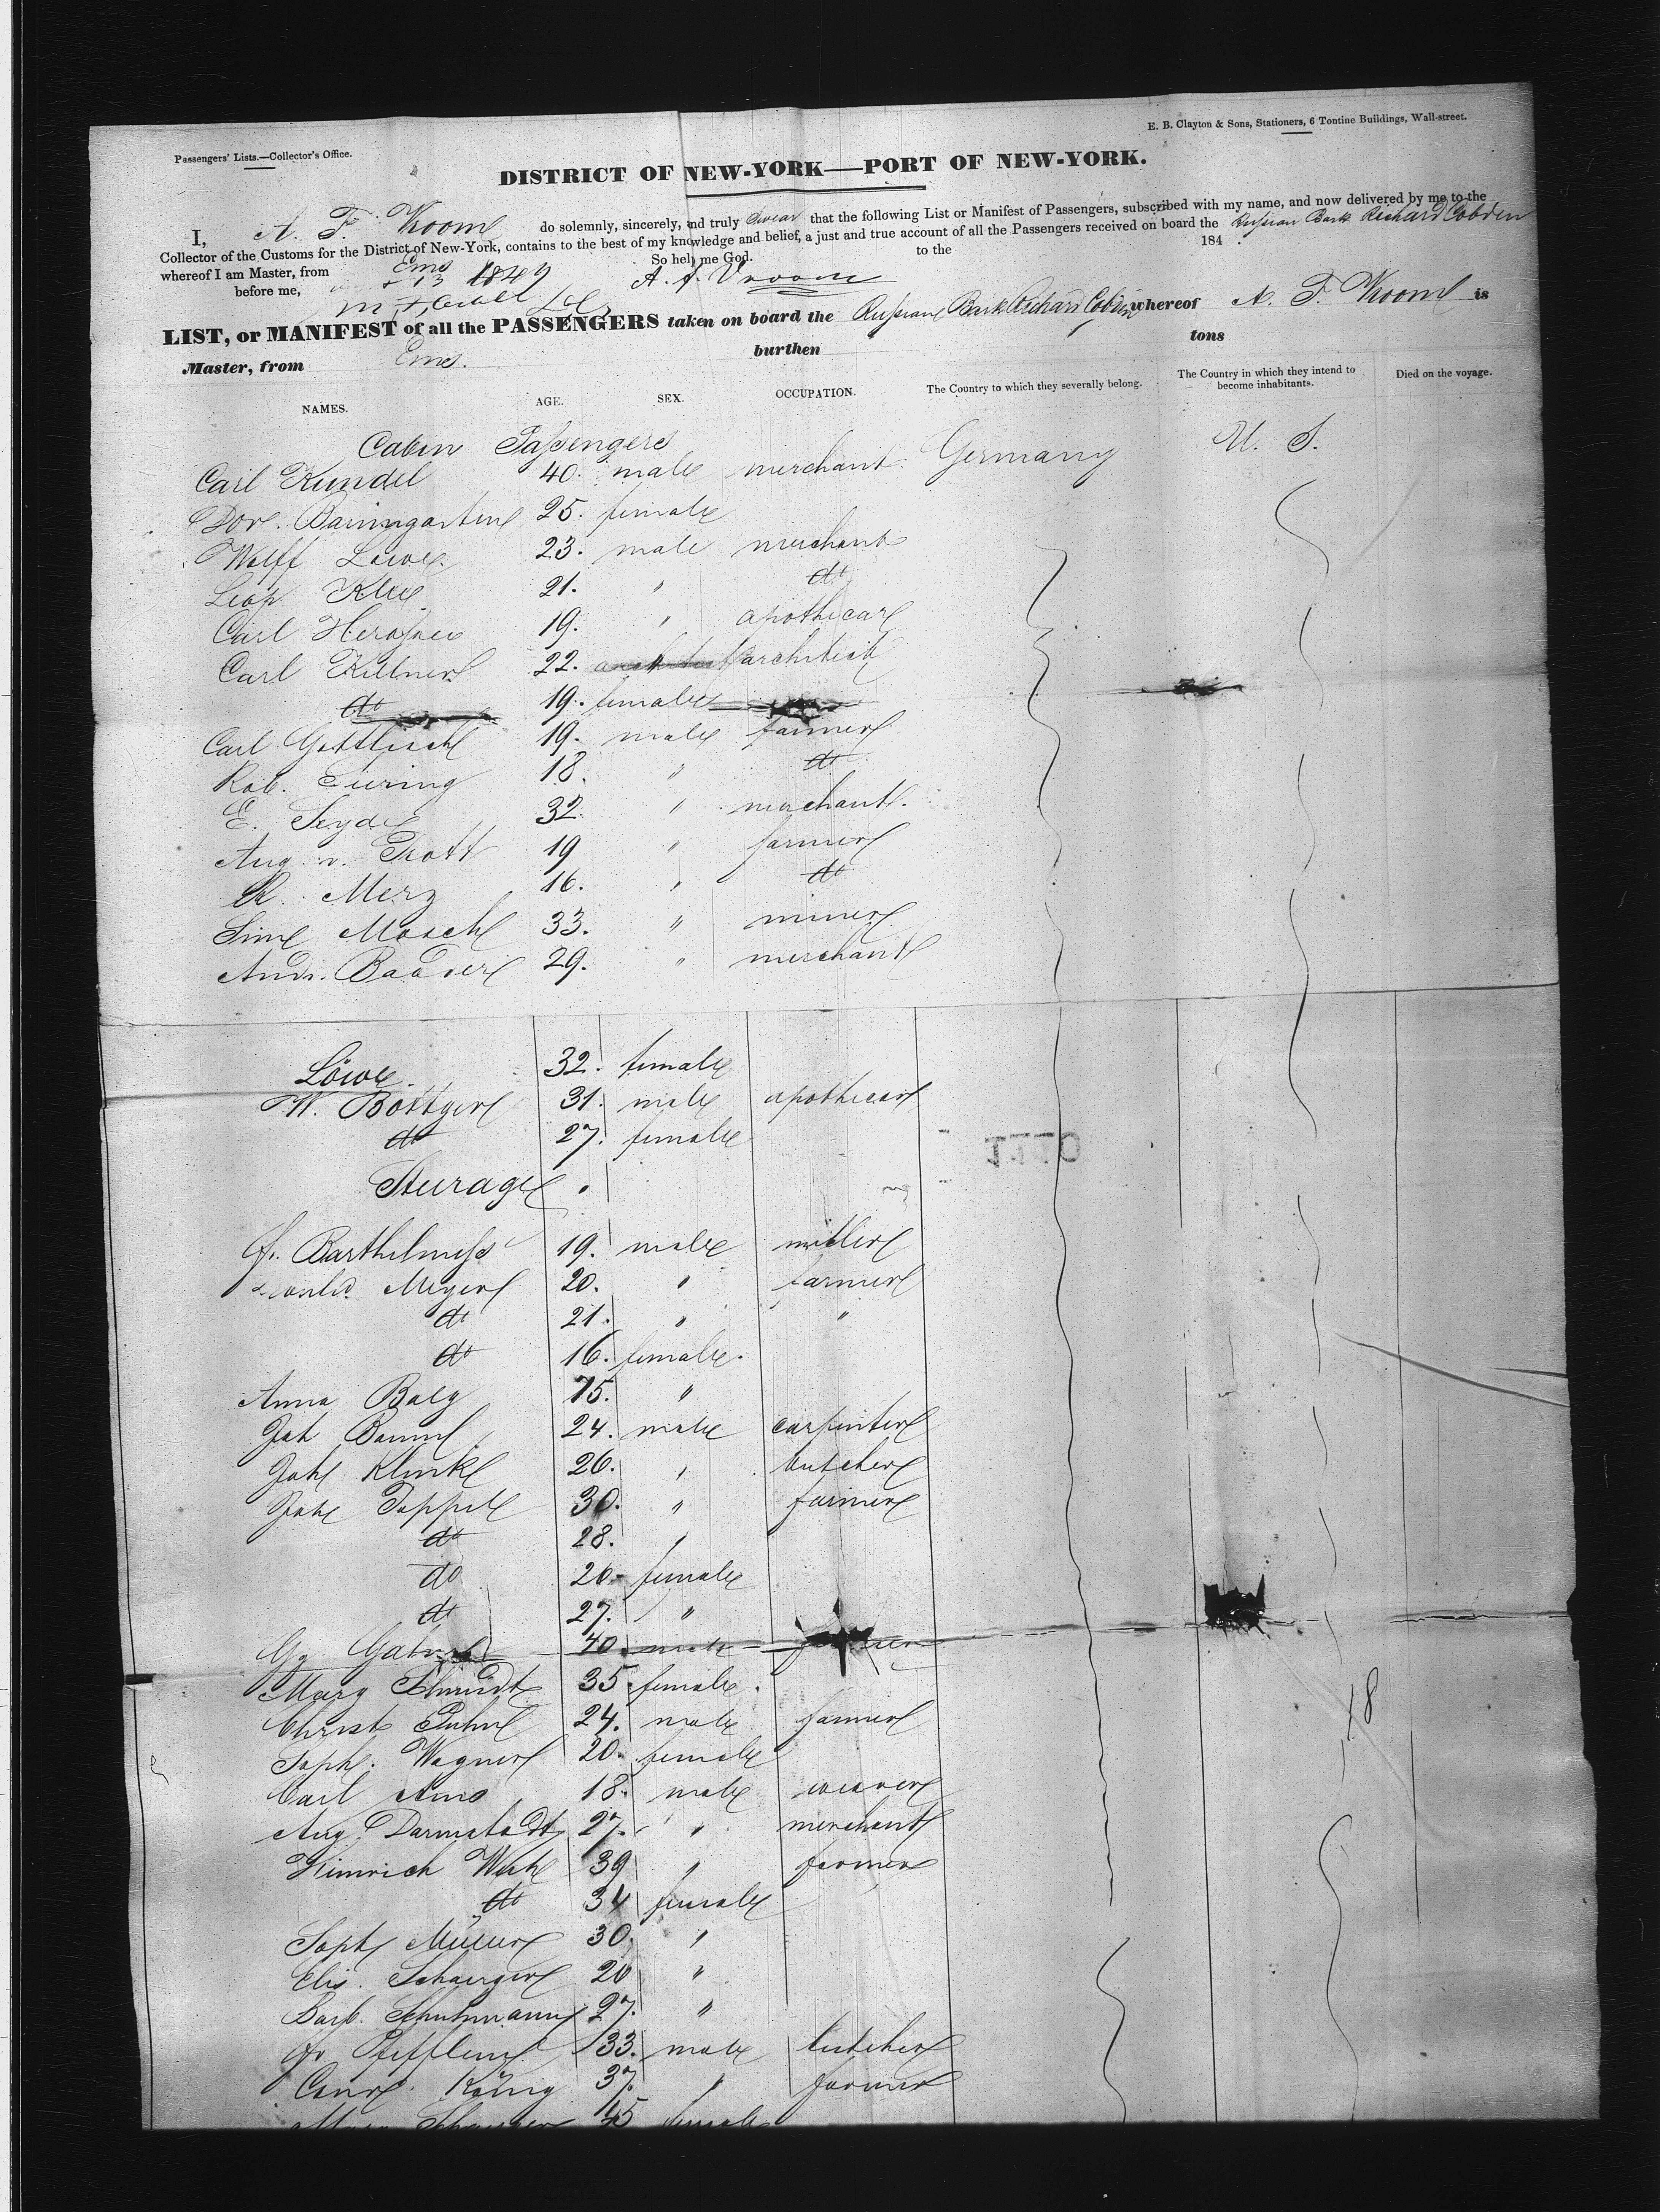 E. B. Clayton & Sons, Stationers, 6 Tontine Buildings, Wall-street.
Passengers' Lists.—Collector's Office.
DISTRICT OF NEW-YORK——PORT OF NEW-YORK.
I, A. F. Vroome do solemnly, sincerely, and truly swear that the following List or Manifest of Passengers, subscribed with my name, and now delivered by me to the
Collector of the Customs for the District of New-York, contains to the best of my knowledge and belief, a just and true account of all the Passengers received on board the Russian Bark Richard Cobden
whereof I am Master, from Ems So help me God. to the 184
before me, 13 1849 A. F. Vroome
LIST, or MANIFEST of all the PASSENGERS taken on board the Russian Bark Richard Cobden whereof A. F. Vroome is
Master, from Ems. burthen tons
NAMES. AGE. SEX. OCCUPATION. The Country to which they severally belong. The Country in which they intend to become inhabitants. Died on the voyage.
Cabin Passengers
Carl Kundel 40. male merchant Germany U. S.
Dor. Baumgarten 25. female
Wolff Löwe. 23. male merchant
Leop. Klee 21. " do
Carl 19. " apothecar
Carl Kellner 22. architect
do 19. female
Carl Gottlisch 19. male farmer
Rob. Türing 18. " do
E. Seyde 32. " merchant.
Aug. v. Trott 19 " farmer
R. Merz 16. " do
Sim Mosch 33. " miner
Andr. Baader 29. " merchant
Löwe. 32. female
W. Böttger 31. male apothecar
do 27. female
1770
Steerage
Fr. Barthelmess 19. male miller
Meyer 20. " farmer
do 21. " "
do 16. female.
Anna Balz 75. "
Joh Baum 24. male carpenter
Joh Klink 26. " butcher
Joh Toppel 30. " farmer
do 28. "
do 20 female
do 27. "
Gg Gabriel 40 male
Marg Schmidt 35 female.
Christ Ruhl 24. male farmer
Soph. Wagner 20. female
Carl Ams 18. male weaver
Aug. Darmstadt 27. " merchant
Heinrich 39 " farmer
do 34 female
Soph Müller 30. "
Elis. Schaerger 20 "
Barb. Schuhmann 27. "
Fr Pfiffling 33. male butcher
Conr. König 37. " farmer
45 female
18